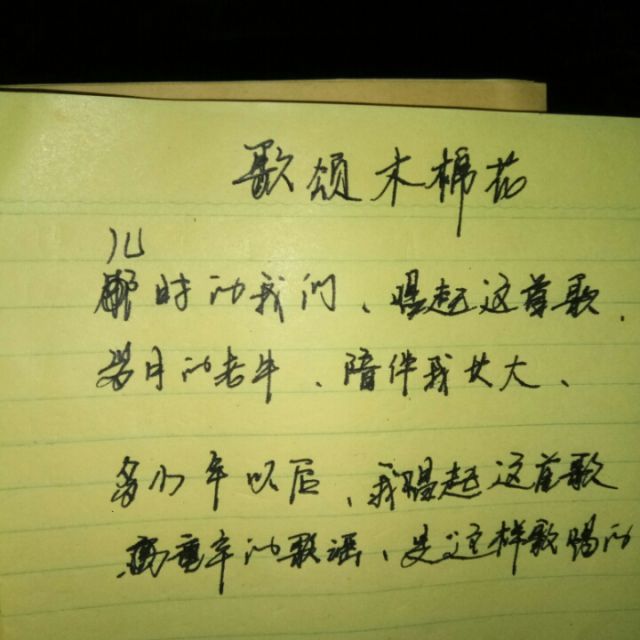 歌颂木棉花
儿
时的我们、唱起这首歌、
岁月的老牛、陪伴我长大、
多少年以后、我唱起这首歌
童年的歌谣、是这样歌唱的